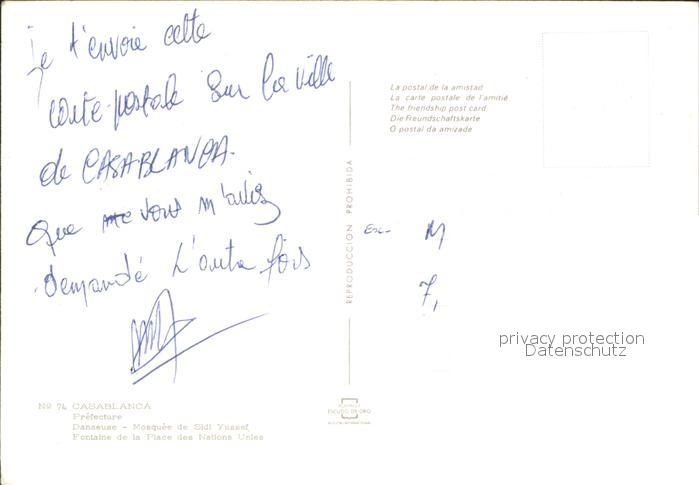 je t'envoie cette
carte-postale sur la ville
de CASABLANCA.
Que me vous m'aviez
demandé L'autre fois
La postal de la amistad
La carte postale de l'amitié
The friendship post card
Die Freundschaftskarte
O postal da amizade
REPRODUCCION PROHIBIDA
M
7,
privacy protection
Datenschutz
Nº 74 CASABLANCA
Préfecture
Danseuse - Mosquée de Sidi Yussef
Fontaine de la Place des Nations Unies
ESCUDO DE ORO